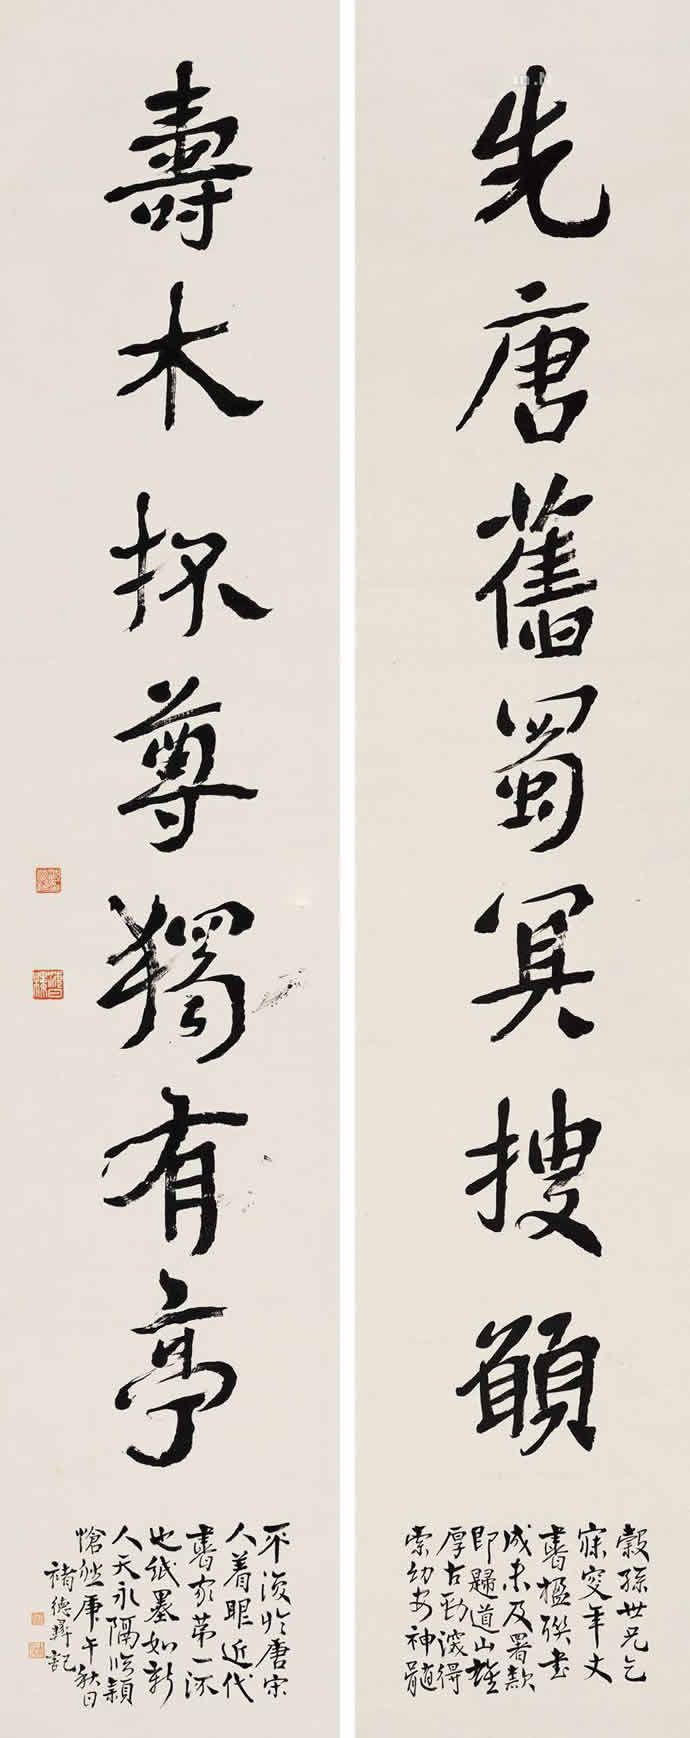 先唐舊蜀冥搜願
穀孫世兄乞
寐叟年丈
書楹聯書
成未及署款
即歸道山雄
厚古勁深得
索幼安神髓
壽木抔尊獨有亭
不復於唐宋
人着眼近代
書家第一流
也紙墨如新
人天永隔臨穎
愴然庚午秋日
褚德彝記